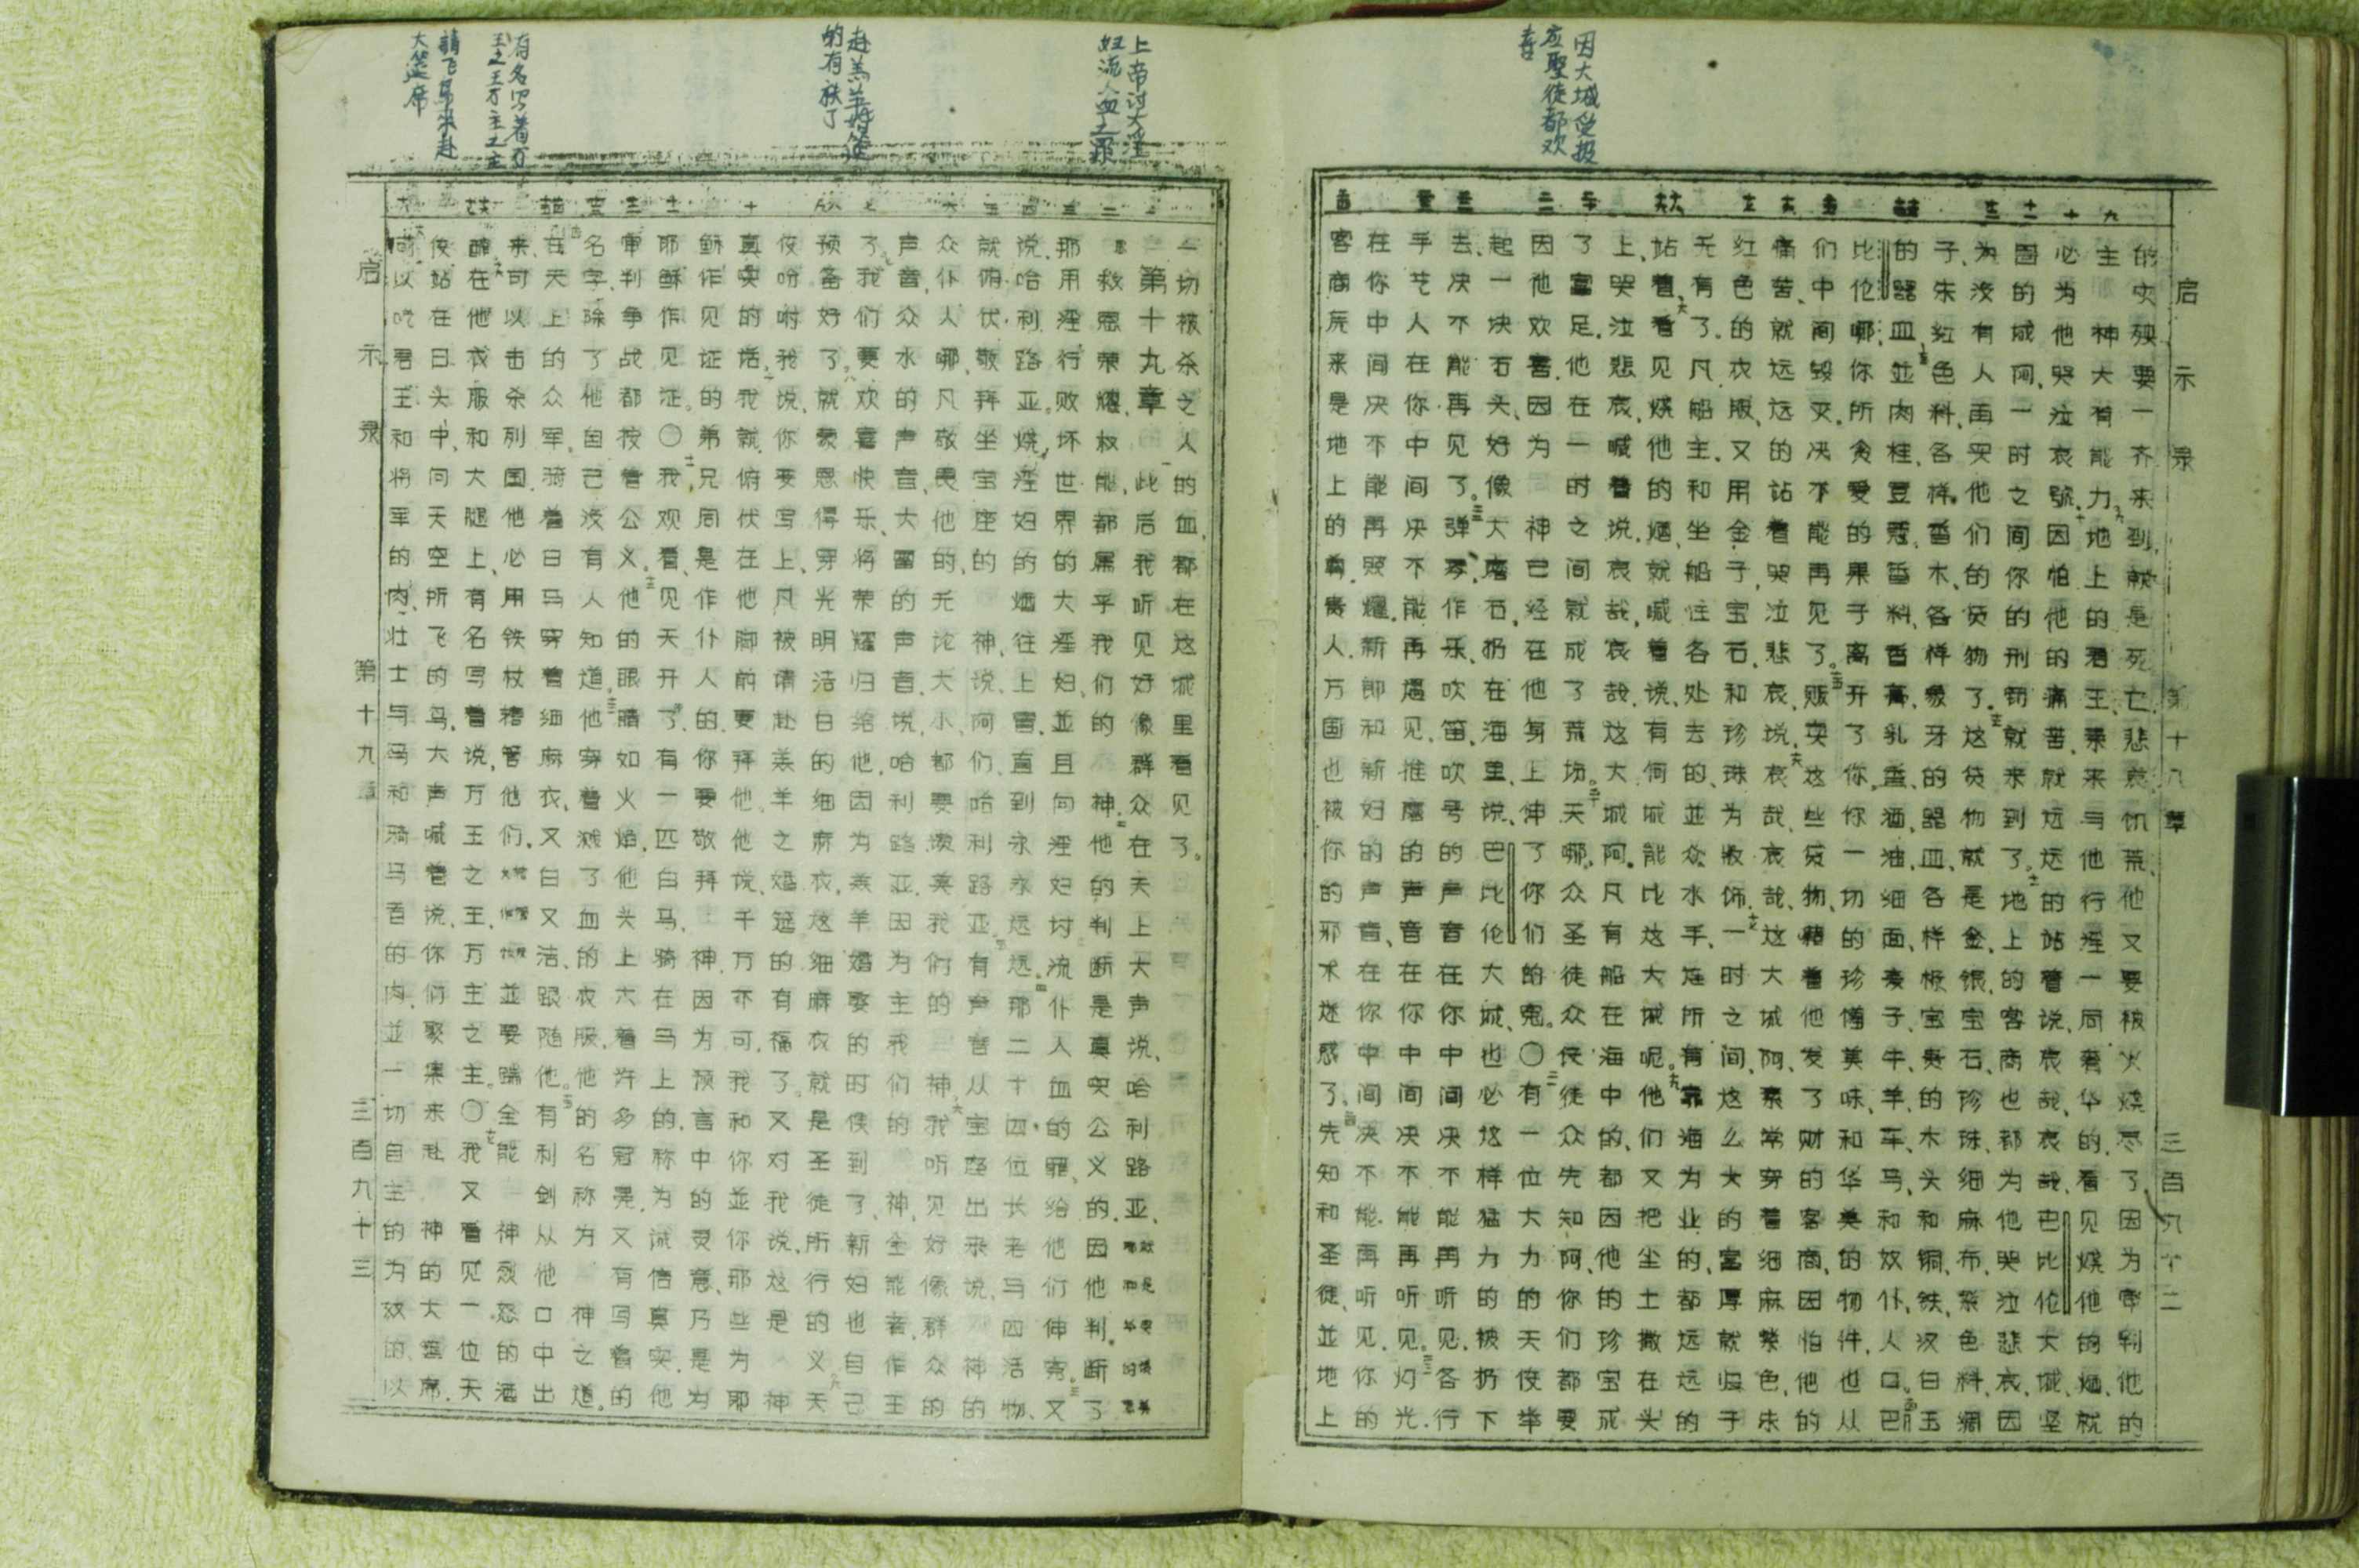 因大城受报
应圣徒都欢
喜
启示录 第十八章 三百九十二
的灾殃要一齐来到、就是死亡、悲哀、饥荒、他又要被火烧尽了、因为审判他的
主 神大有能力。地上的君王、素来与他行淫一同奢华的、看见烧他的烟、就
必为他哭泣哀號。因怕他的痛苦、就远远的站着说、哀哉、哀哉、巴比伦大城、坚
固的城阿、一时之间你的刑罚就来到了。地上的客商也都为他哭泣悲哀、因
为没有人再买他们的货物了。这货物就是金、银、宝石、珍珠、细麻布、紫色料、绸
子、朱红色料、各样香木、各样象牙的器皿、各样极宝贵的木头和铜、铁、汉白玉
的器皿、並肉桂、荳蔻、香料、香膏、乳香、酒、油、细面、麦子、牛、羊、车、马、和奴仆、人口。巴
比伦哪、你所贪爱的果子离开了你、你一切的珍馐美味、和华美的物件、也从
们中间毁灭、决不能再见了。贩卖这些货物、藉着他发了财的客商、因怕他的
痛苦、就远远的站着哭泣悲哀、说、哀哉、哀哉、这大城阿、素常穿着细麻、紫色、朱
红色的衣服、又用金子、宝石、和珍珠为妆饰。一时之间、这么大的富厚就归于
无有了。凡船主、和坐船往各处去的、並众水手、连所有靠海为业的、都远远的
站着、看见烧他的烟、就喊着说、有何城能比这大城呢。他们又把尘土撒在头
上、哭泣悲哀、喊着说、哀哉、哀哉、这大城阿。凡有船在海中的、都因他的珍宝成
了富足、他在一时之间就成了荒场。天哪、众圣徒众使徒众先知阿、你们都要
因他欢喜、因为 神已经在他身上伸了你们的冤。〇有一位大力的天使举
起一块石头、好像大磨石、扔在海里、说、巴比伦大城、也必这样猛力的被扔下
去、决不能再见了。弹琴、作乐、吹笛、吹号的声音、在你中间决不能再听见、各行
手艺人在你中间决不能再遇见、推磨的声音、在你中间决不能再听见、灯光
在你中间决不能再照耀、新郎和新妇的声音、在你中间决不能再听见、你的
客商原来是地上的尊贵人、万国也被你的邪术迷惑了。先知和圣徒、並地上
上帝讨大淫
妇流人血之罪
赴羔羊婚筵
的有福了
有名写着万
王之王万主之主
请飞鸟来赴
大筵席
一切被杀之人的血、都在这城里看见了。
第十九章 此后我听见好像群众在天上大声说、哈利路亚、
救恩荣耀、权能、都属乎我们的 神、他的判断是真实公义的、因他判断了
那用淫行败坏世界的大淫妇、並且向淫妇讨流仆人血的罪、给他们伸冤。又
说、哈利路亚。烧淫妇的烟往上冒、直到永永远远。那二十四位长老与四活物、
就俯伏敬拜坐宝座的 神、说、阿们、哈利路亚。有声音从宝座出来说、 神的
众仆人哪、凡敬畏他的、无论大小、都要赞美我们的 神。我听见好像群众的
声音、众水的声音、大雷的声音、说、哈利路亚、因为主我们的 神、全能者作王
了、我们要欢喜快乐、将荣耀归给他、因为羔羊婚娶的时候到了、新妇也自己
预备好了。就蒙恩得穿光明洁白的细麻衣、这细麻衣就是圣徒所行的义。天
使吩咐我说、你要写上、凡被请赴羔羊之婚筵的有福了。又对我说、这是 神
真实的话。我就俯伏在他脚前要拜他、他说、千万不可、我和你並你那些为耶
稣作见证的弟兄、同是作仆人的、你要敬拜 神、因为预言中的灵意、乃是为
耶稣作见证。〇我观看、见天开了、有一匹白马、骑在马上的、称为诚信真实、他
审判争战都按着公义。他的眼睛如火焰、他头上大着许多冠冕、又有写着的
名字、除了他自己没有人知道。他穿着溅了血的衣服、他的名称为 神之道。
在天上的众军、骑着白马、穿着细麻衣、又白又洁、跟随他。有利剑从他口中出
来、可以击杀列国、他必用铁杖辖管他们、並要踹全能 神烈怒的酒
醡、在他衣服和大腿上、有名写着说、万王之王、万主之主。〇我又看见一位天
使站在日头中、向天空所飞的鸟大声喊着说、你们聚集来赴 神的大筵席、
可以吃君王和将军的肉、壮士与马和骑马者的肉、並一切自主的为奴的、以
启示录 第十九章 三百九十三